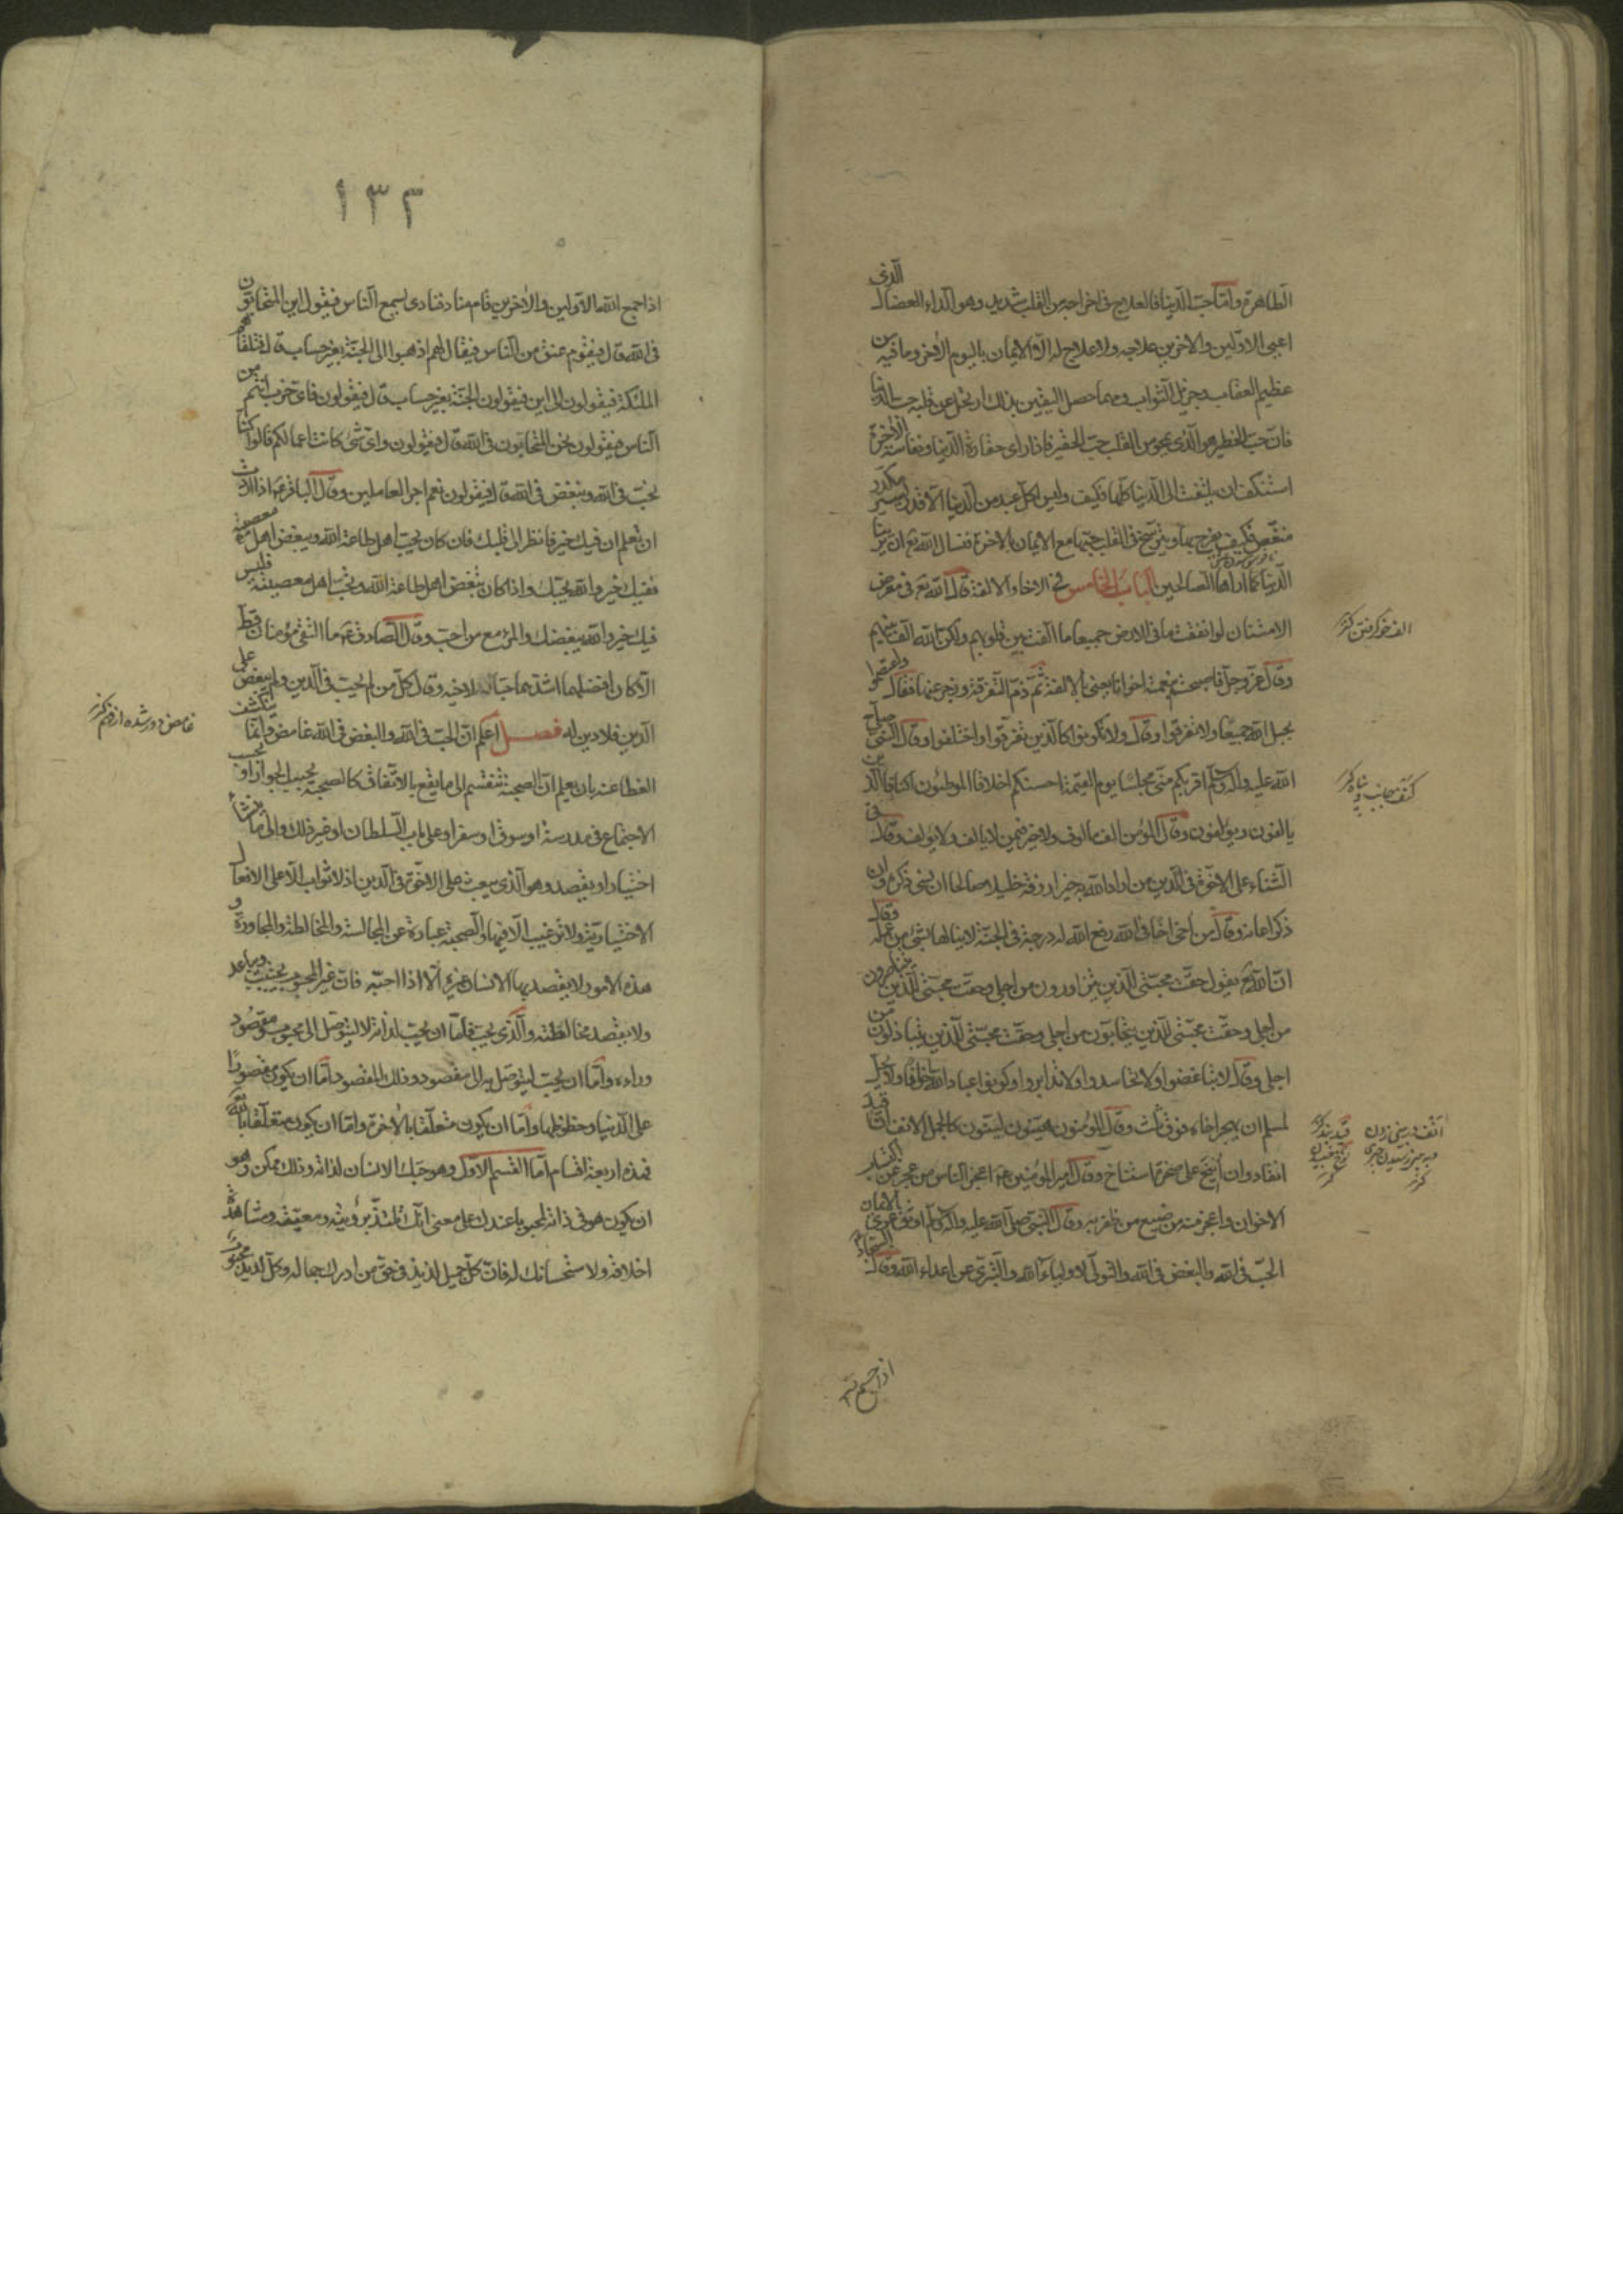 الطاهرة وامّا حبّ الدنيا فالعلاج فى اخراجه من القلب شديد وهو الداء العضال الذى
اعيى الاوّلين والاخرين علاجه ولا علاج له الّا الايمان باليوم الاخر وما فيه من
عظيم العقاب وجزيل الثواب ومهما حصل اليقين بذلك ارتحل عن قلبه حب الدنيا
فانّ حبّ الخطير هو الذى يمحو من القلب حبّ الحقير فاذا راى حقارة الدنيا ونفاسة الاخرة
استنكف ان يلتفت الى الدنيا كلّها فكيف وليس لكل عبد من الدنيا الّا قدر يسير مكدّر
منغّص فكيف يفرح بها ويترسّخ فى القلب حبّها مع الايمان بالاخرة فنسال الله تع ان يرينا
الدنيا كما اراها الصالحين الباب الخامس فى الاخاء والالفة قال الله تع فى معرض
الامتنان لو انفقت ما فى الارض جميعا ما الّفت بين قلوبهم ولكن الله الّف بينهم
وقال عزّ وجلّ فاصبحتم بنعمته اخوانا يعنى بالالفة ثمّ ذمّ التفرقة وزجر عنها فقال واعتصموا
بحبل الله جميعا ولا تفرّقوا وقال ولا تكونوا كالذين تفرّقوا واختلفوا وقال النبى صلّى
الله عليه واله وسلّم اقربكم منّى مجلسًا يوم القيمة احسنكم اخلاقا الموطئون اكنافا الذين
يالفون ويؤلفون وقال المؤمن الف مالوف ولا خير فيمن لا يالف ولا يؤلف وقال فى
الثناء على الاخوّة فى الدين من اراد الله به خيرا رزقه خليلا صالحا ان نسى ذكره وان
ذكر اعانه وقال من اخى اخًا فى الله رفع الله له درجة فى الجنة لا ينالها بشئ من عمله وقال
انّ الله تع يقول حقّت محبّتى للذين يتزاورون من اجلى وحقّت محبّتى للذين يتناصرون
من اجلى وحقّت محبّتى للذين يتحابّون من اجلى وحقّت محبّتى للذين يتباذلون من
اجلى وقال لا تباغضوا ولا تحاسدوا ولا تدابروا وكونوا عباد الله اخوانا ولا يحلّ
لمسلم ان يهجر اخاه فوق ثلث وقال المؤمنون هيّنون ليّنون كالجمل الانف ان قيد
انقاد وان انيخ على صخرة استناخ وقال امير المؤمنين ع اعجز الناس من عجز عن اكتساب
الاخوان واعجز منه من ضيع من ظفر به وقال النبى صلّى الله عليه واله وسلّم اوثق عرى الايمان
الحبّ فى الله والبغض فى الله والتولّى لاولياء الله والتبرّى عن اعداء الله وقال السجّاد ع
الف خو كرفتن كنز
كنف جانب و پناه كنز
اذا جمع
١٣٢
اذا جمع الله الاوّلين والاخرين قام مناد فنادى يسمع الناس فيقول اين المتحابّون
فى الله قال فيقوم عنق من الناس فيقال لهم اذهبوا الى الجنّة بغير حساب قال فتلقاهم
الملئكة فيقولون الى اين فيقولون الجنّة بغير حساب قال فيقولون فاىّ حزب انتم من
الناس فيقولون نحن المتحابّون فى الله قال فيقولون واىّ شئ كانت اعمالكم قالوا كنّا
نحبّ فى الله ونبغض فى الله قال فيقولون نعم اجر العاملين وقال الباقر ع اذا اردت
ان تعلم ان فيك خيرا فانظر الى قلبك فان كان يحبّ اهل طاعة الله ويبغض اهل معصيته
ففيك خير والله يحبّك واذا كان يبغض اهل طاعة الله ويحبّ اهل معصيته فليس
فيك خير والله يبغضك والمرء مع من احبّ وقال الصادق ع ما التقى مؤمنان قطّ
الّا كان افضلهما اشدّهما حبّا لاخيه وقال كلّ من لم يحبّ فى الدين ولم يبغض على
الدين فلا دين له فصل اعلم انّ الحبّ فى الله والبغض فى الله غامض وانما ينكشف
الغطا عنه بان يعلم انّ الصحبة تنقسم الى ما يقع بالاتّفاق كالصحبة بحسب الجوار او بحسب
الاجتماع فى مدرسة او سوق او سفر او على باب السلطان او غير ذلك والى ما ينشاء
اختيارا ويقصد وهو الذى يبعث على الاخوّة فى الدين اذ لا ثواب الّا على الافعال
الاختيارية ولا ترغيب الّا فيها والصحبة عبارة عن المجالسة والمخالطة والمجاورة و
هذه الامور لا يقصد بها الانسان غيره الّا اذا احبّه فانّ غير المحبوب يجتنب ويباعد
ولا يقصد مخالطته والذى يحبّ فامّا ان يحبّ لذاته لا ليتوصّل الى محبوب ومقصود
وراءه وامّا ان يحبّ ليتوصّل به الى مقصود وذلك المقصود امّا ان يكون مقصورا
على الدنيا وحظوظها وامّا ان يكون متعلّقا بالاخرة وامّا ان يكون متعلّقا بالله
فهذه اربعة اقسام امّا القسم الاوّل وهو حبّك الانسان لذاته وذلك ممكن وهو
ان يكون هو فى ذاته محبوبا عندك على معنى انّك تلتذّ برؤيته ومعرفته ومشاهدة
اخلاقه ولاستحسانك له فانّ كلّ جميل لذيذ فى حقّ من ادرك جماله وكلّ لذيذ محبوب